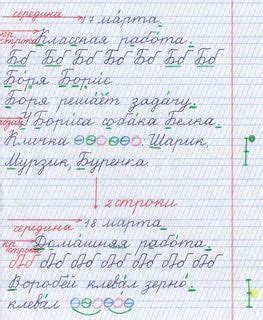 середина 17 марта.
кр. строка Классная работа.
Бб Бб Бб Бб Бб Бб Бб
Боря Борис
Боря решает задачу.
У Бориса собака Белка.
Кличка : Шарик,
Мурзик, Буренка.
2 строки
середина 18 марта.
кр. строка Домашняя работа.
Воробей клевал зерно.
клевал